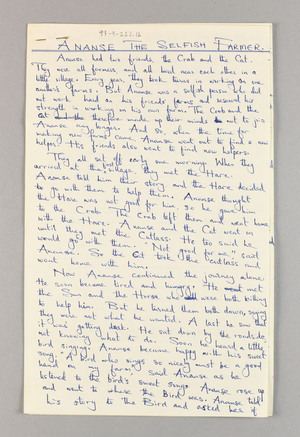 ANANSE THE SELFISH FARMER.
Ananse had two friends, the Crab and the Cat.
They were all farmers and all lived near each other in a
little village. Every year, they took turns in working on one
another's farms. But Ananse was a selfish person who did
not work hard on his friends' farms and reserved his
strength in working on his own farms. The Crab and the
Cat therefore made up their minds not to join
Ananse any longer. And so, when the time for
making new farms came, Ananse went out to find a new
helper. His friends also went to find new helpers.
They all set off early one morning. When they
arrived at the village, they met the Hare.
Ananse told him their story and the Hare decided
to go with them to help them. Ananse thought
the Hare was not good for him so he gave him
to the Crab. The Crab left them and went home
with the Hare. Ananse and the Cat went on
until they met the Cutlass. He too said he
would go with them. Not good for me said
Ananse. So the Cat took the Cutlass and
went home with him.
Now Ananse continued the journey alone.
He soon became tired and hungry. He met
the Sun and the Horse who were both willing
to help him. But he turned them both down, saying
they were not what he wanted. At last he saw that
it was getting dark. He sat down by the roadside,
not knowing what to do. Soon he heard a little
bird singing. Ananse became happy with his sweet
song. A bird who sings so nicely must be a good
hand on my farm, said Ananse as he
listened to the bird's sweet song. Ananse rose up
and went to where the Bird was. Ananse told
his story to the Bird and asked her if